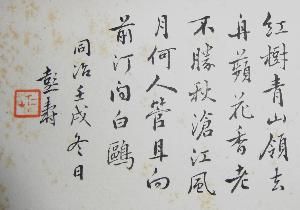 紅樹青山領去
舟蘋花香老
不勝秋滄江風
月何人管且向
前汀問白鷗
同治壬戌冬日
彭壽